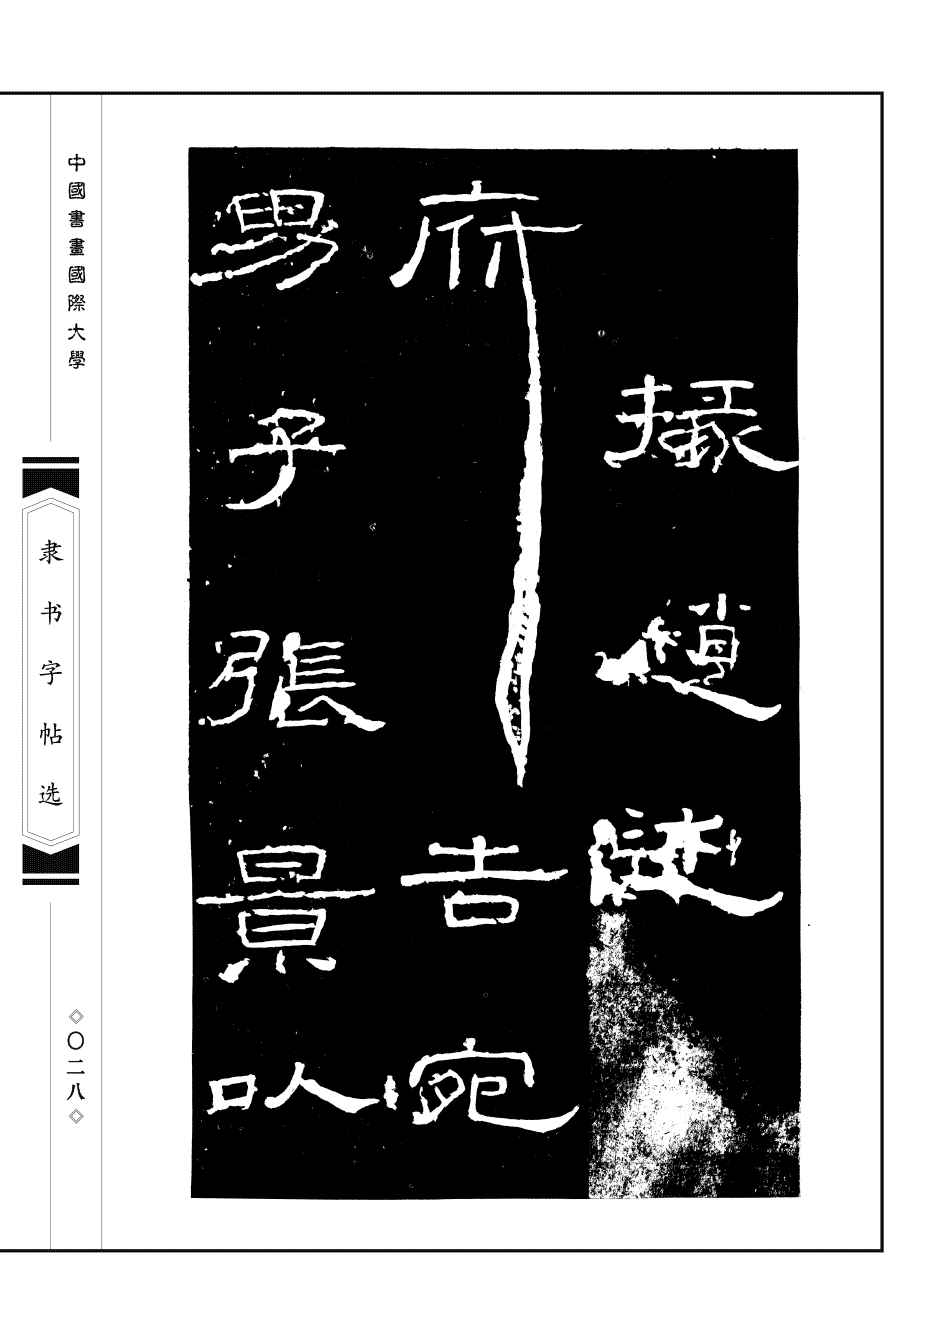 據趙述
府告宛
男子張景以
中國書畫國際大學
隶书字帖选
〇二八